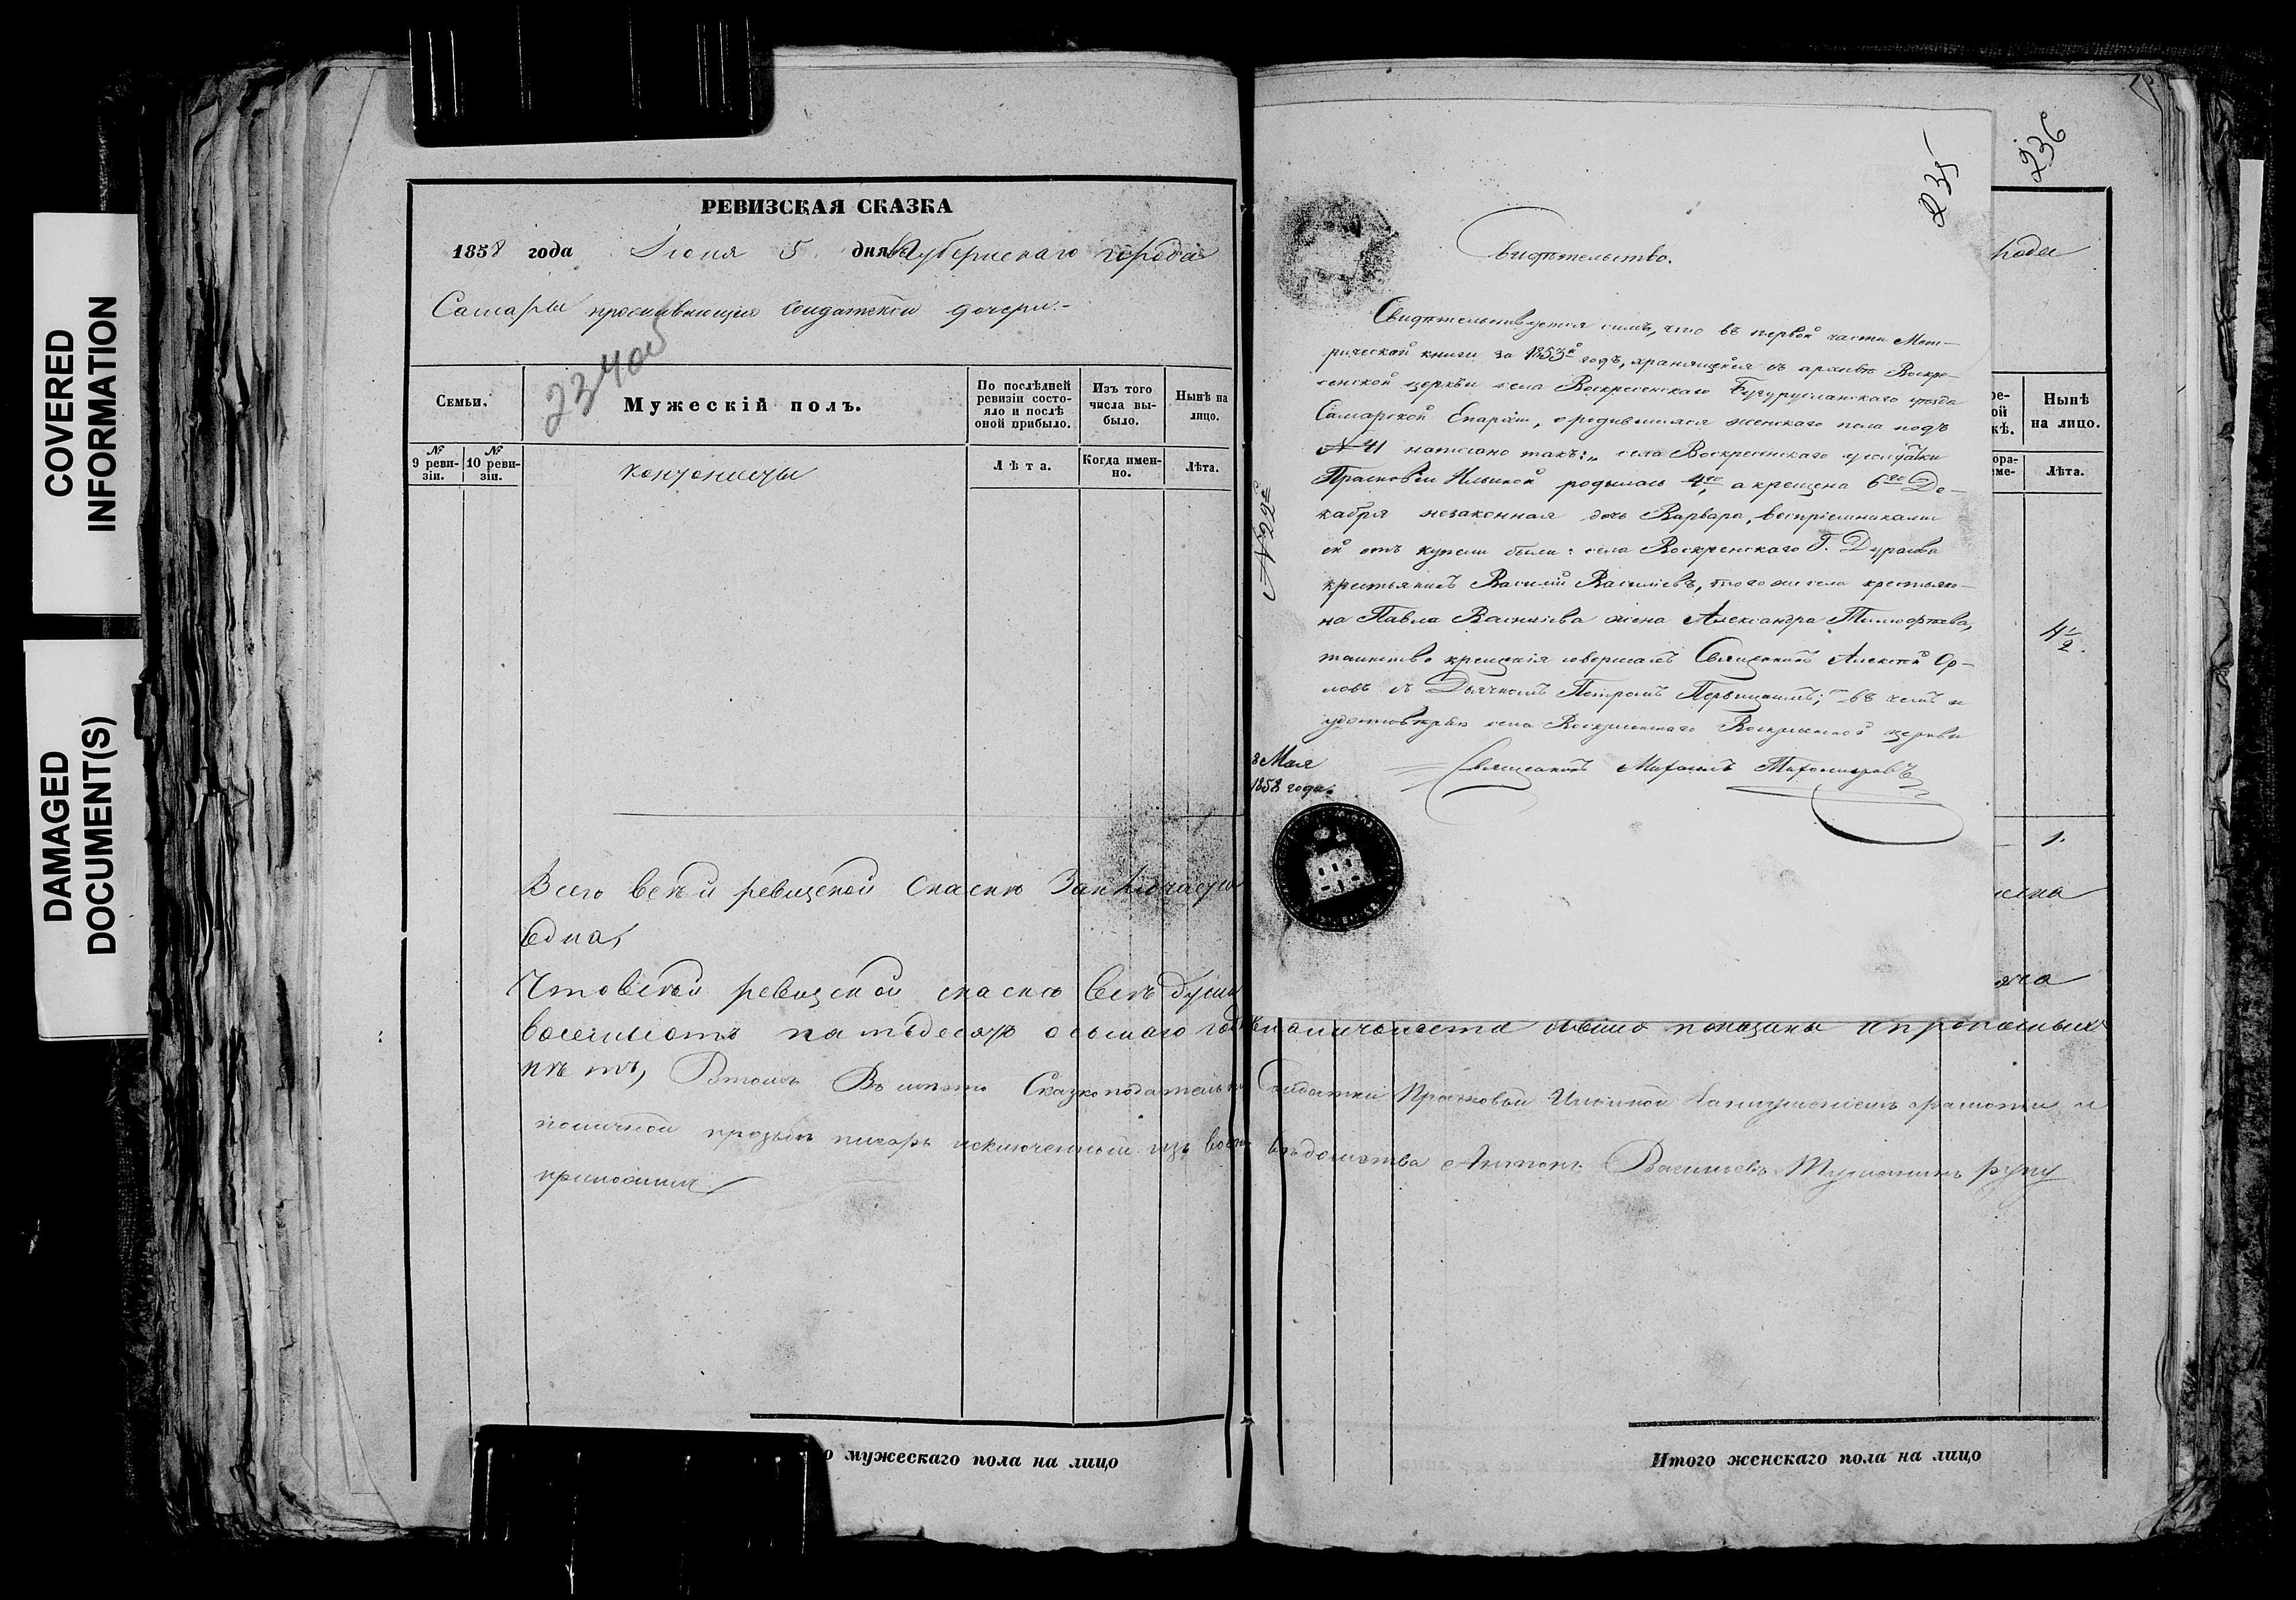 COVERED
INFORMATION
DAMAGED
DOCUMENT(S)
РЕВИЗСКАЯ СКАЗКА
1858 года Іюня 5 дня Губернскаго города
Самары проживающия солдатской дочери.
23400
Семьи.
Мужескій полъ.
По послѣдней ревизіи состояло и послѣ оной прибыло.
Изъ того числа выбыло.
Нынѣ на лицо.
№ 9 ревизіи.
№ 10 ревизіи.
Лѣта.
Когда именно.
Лѣта.
Кантонисты
Всего в сей ревизской Сказке Заключается
Една,
Что в сей ревизской сказке все души
восемьсотъ пятьдесятъ осьмаго года на лицо показаны и прописныхъ
нетъ, Вместо Сказкоподательницы Солдатки Прасковьи Ильиной
по личной прозьбе писарь исключенный изъ ведомства Антонъ Васильевъ руку
приложилъ
о мужескаго пола на лицо
235
236
Свидѣтельство.
Свидѣтельствуется симъ, что въ первой части Мет-
рической книги за 1853й годъ, хранящейся въ архивѣ Воскре-
сенской церкви села Воскресенскаго Бугурусланскаго уѣзда
Самарской Епархіи, о родившихся женскаго пола подъ
№ 41 написано такъ: „села Воскресенскаго у солдатки
Прасковьи Ильиной родилась 4го, а крещена 6го Де-
кабря незаконная дочь Варвара, воспріемниками
ей отъ купели были: села Воскресенскаго Г. Дурасова
крестьянинъ Василій Васильевъ, того же села крестьяни-
на Павла Васильева жена Александра Тимофѣева,
таинство крещенія совершалъ Священникъ Алексѣй Ор-
ловъ съ Дьячкомъ Петромъ въ чемъ и
удостовѣряю села Воскресенскаго Воскресенской церкви
Священникъ Михаилъ Тихомировъ
8 Мая
1858 года.
№ 22
рода
Нынѣ на лицо.
Лѣта.
4 1/2.
1.
Итого женскаго пола на лицо